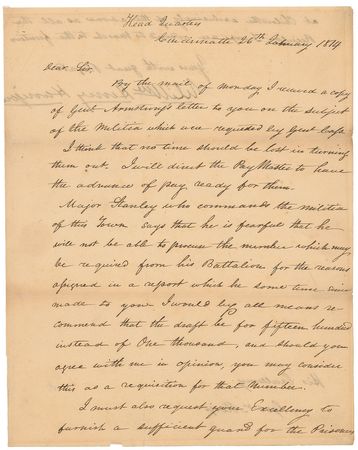 Head Quarters
Cincinnatti 26th January 1814
Dear Sir,
By the mail of monday I received a copy
of Genl Armstrong's letter to you on the subject
of the Militia which were requested by Genl Cass
I think that no time should be lost in turning
them out. I will direct the Pay Master to have
the advance of pay ready for them.
Major Stanley who commands the militia
of this Town says that he is fearful that he
will not be able to procure the number which may
be required from his Battalion for the reasons
assigned in a report which he some time since
made to you I would by all means re-
commend that the draft be for fifteen hundred
instead of One thousand, and should you
agree with me in opinion, you may consider
this as a requisition for that Number.
I must also request your Excellency to
furnish a sufficient guard for the Prisoners